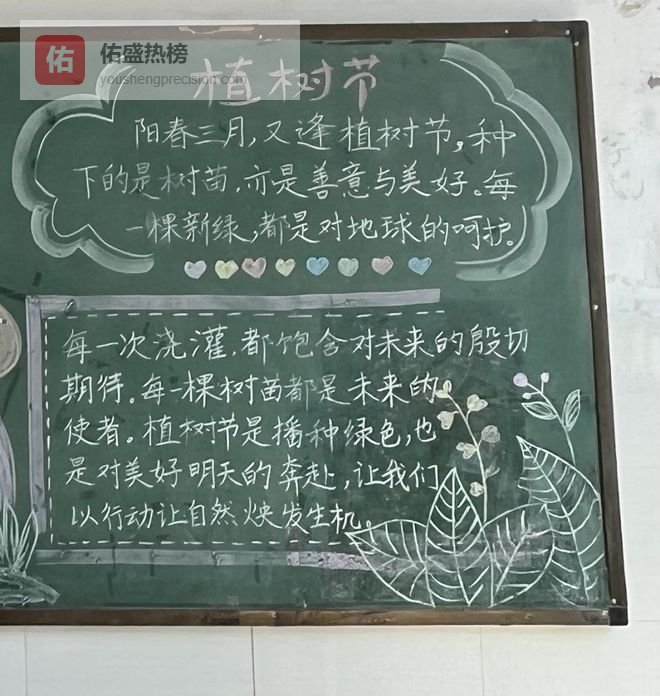 佑
佑盛热榜
youshengprecision.com
植树节
阳春三月,又逢植树节,种
下的是树苗,亦是善意与美好。每
一棵新绿,都是对地球的呵护。
每一次浇灌,都饱含对未来的殷切
期待。每一棵树苗都是未来的
使者。植树节是播种绿色,也
是对美好明天的奔赴,让我们
以行动让自然焕发生机。